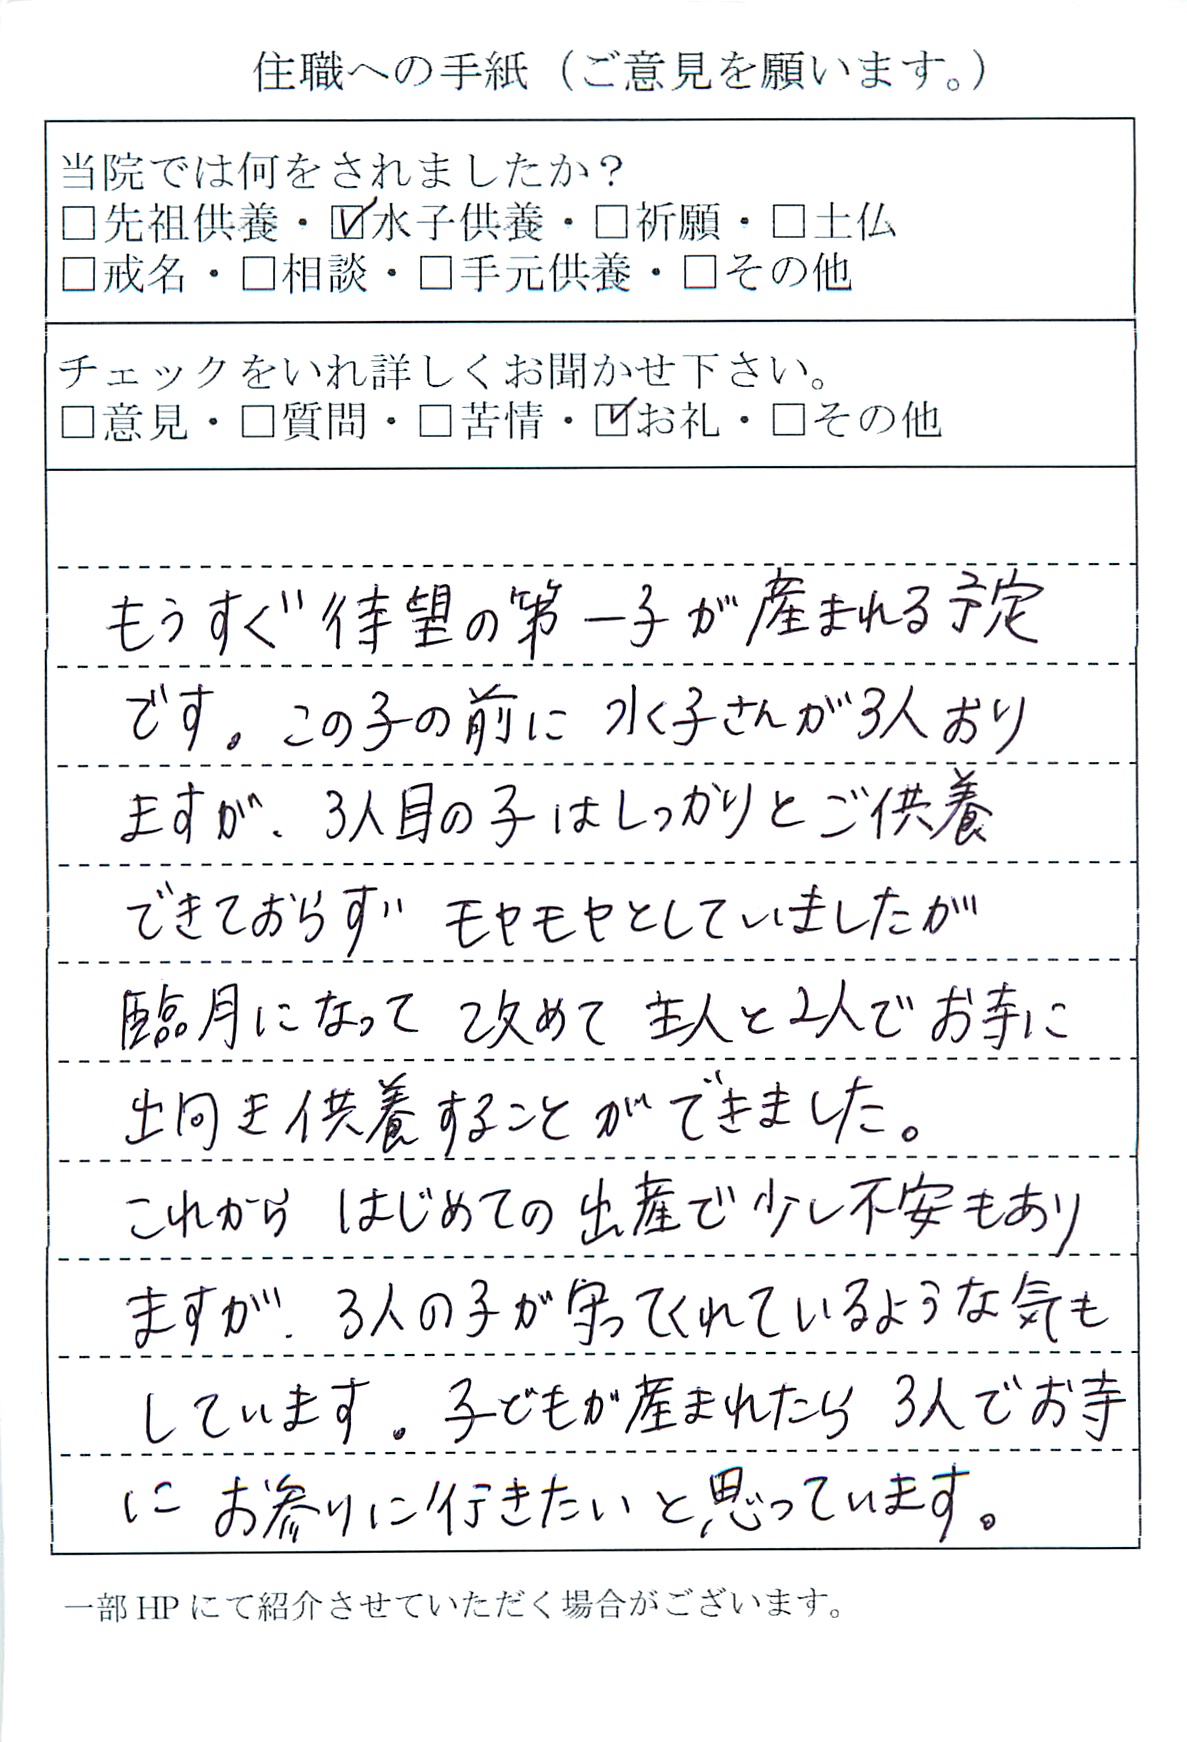 住職への手紙（ご意見を願います。）
当院では何をされましたか？
□先祖供養・☑水子供養・□祈願・□土仏
□戒名・□相談・□手元供養・□その他
チェックをいれ詳しくお聞かせ下さい。
□意見・□質問・□苦情・☑お礼・□その他
もうすぐ待望の第一子が産まれる予定
です。この子の前に水子さんが3人おり
ますが、3人目の子はしっかりとご供養
できておらず モヤモヤとしていましたが
臨月になって 改めて 主人と2人でお寺に
出向き供養することができました。
これから はじめての出産で少し不安もあり
ますが、3人の子が守ってくれているような気も
しています。子どもが産まれたら 3人でお寺
に お参りに行きたいと思っています。
一部HPにて紹介させていただく場合がございます。